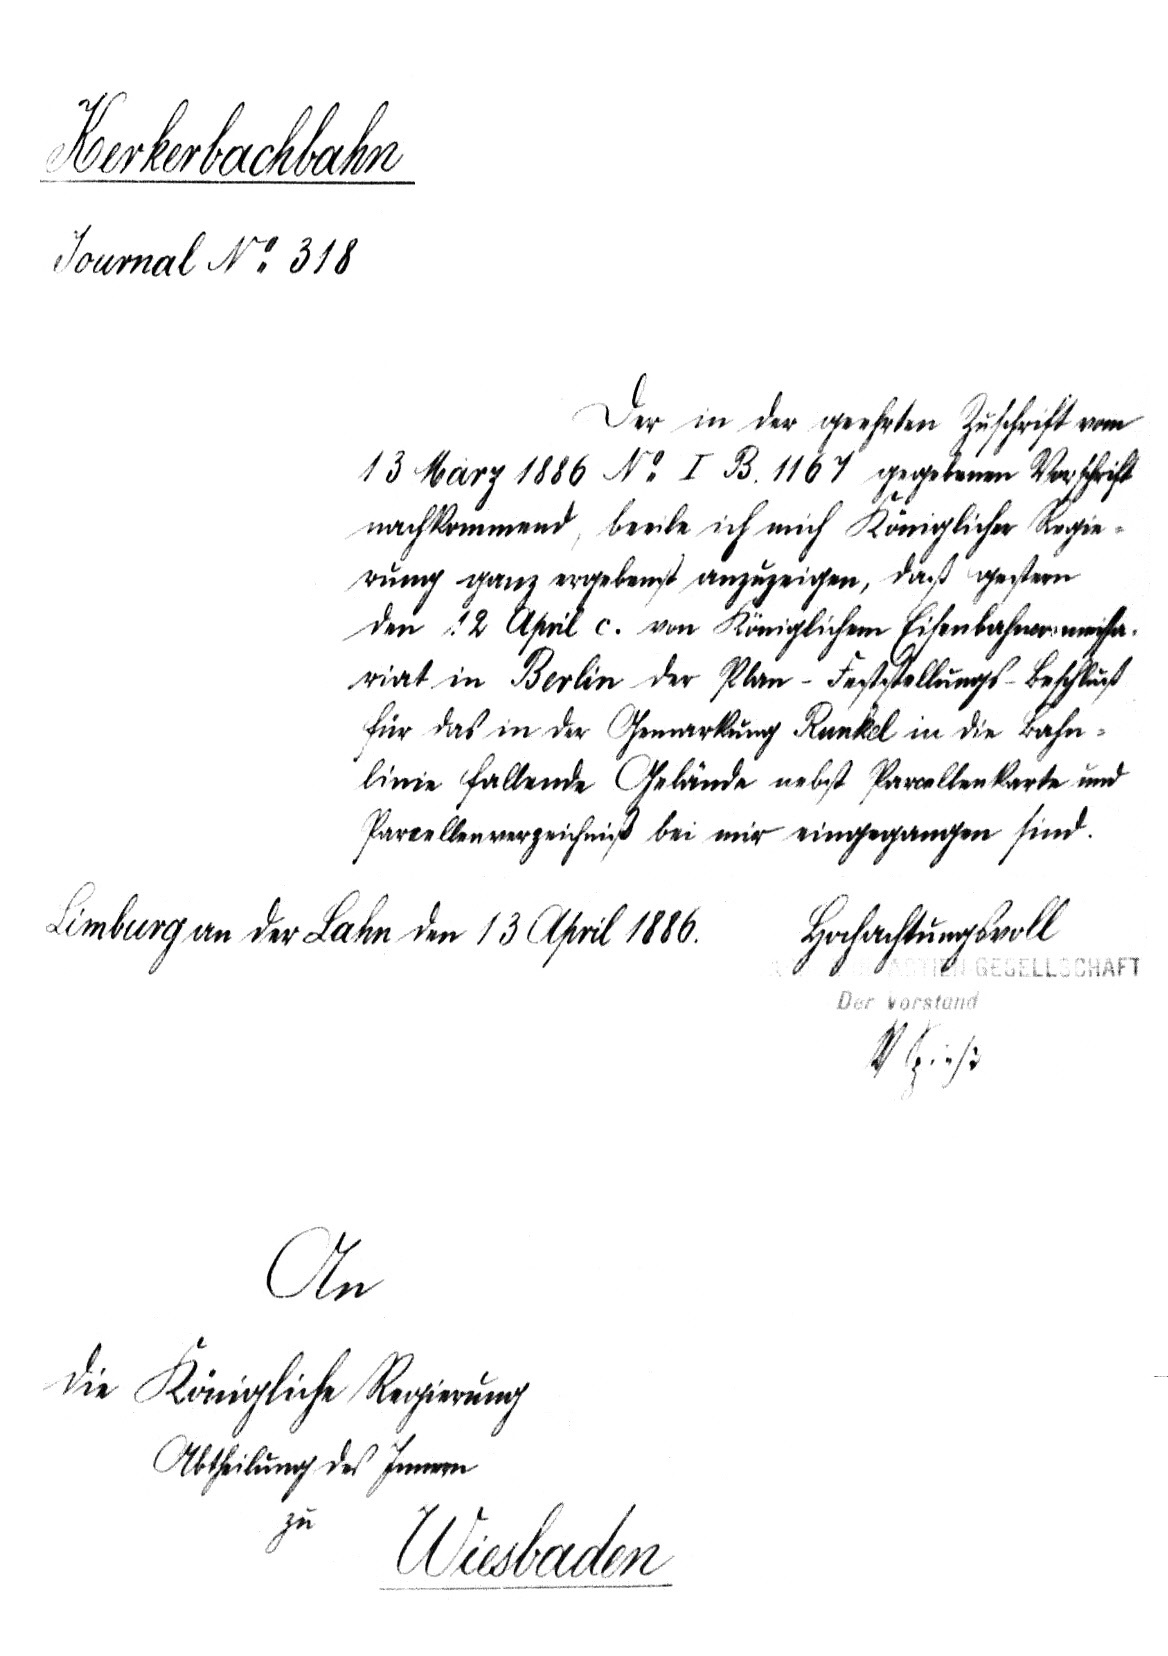 Kerkerbachbahn
Journal No. 318
Der in der geehrten Zuschrift vom
13 März 1886 No. I B. 1167 gegebenen Vorschrift
nachkommend, beeile ich mich Königlicher Regie-
rung ganz ergebenst anzuzeigen, daß gestern
den 12 April c. von Königlichem Eisenbahncommissa-
riat in Berlin der Plan-Feststellungs-Beschluß
für das in der Gemarkung Runkel in die Bahn-
linie fallende Gelände nebst Parcellenkarte und
Parcellenverzeichniß bei mir eingegangen sind.
Limburg an der Lahn den 13 April 1886.
Hochachtungsvoll
ACTIEN-GESELLSCHAFT
Der Vorstand
An
die Königliche Regierung
Abtheilung des Innern
zu
Wiesbaden